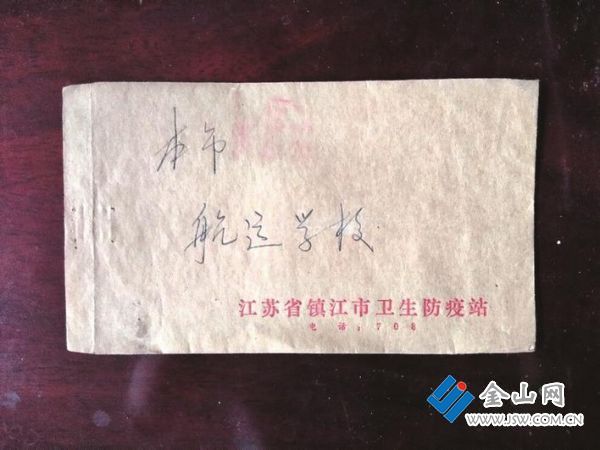 本市
航运学校
江苏省镇江市卫生防疫站
电话:708
金山网
WWW.JSW.COM.CN